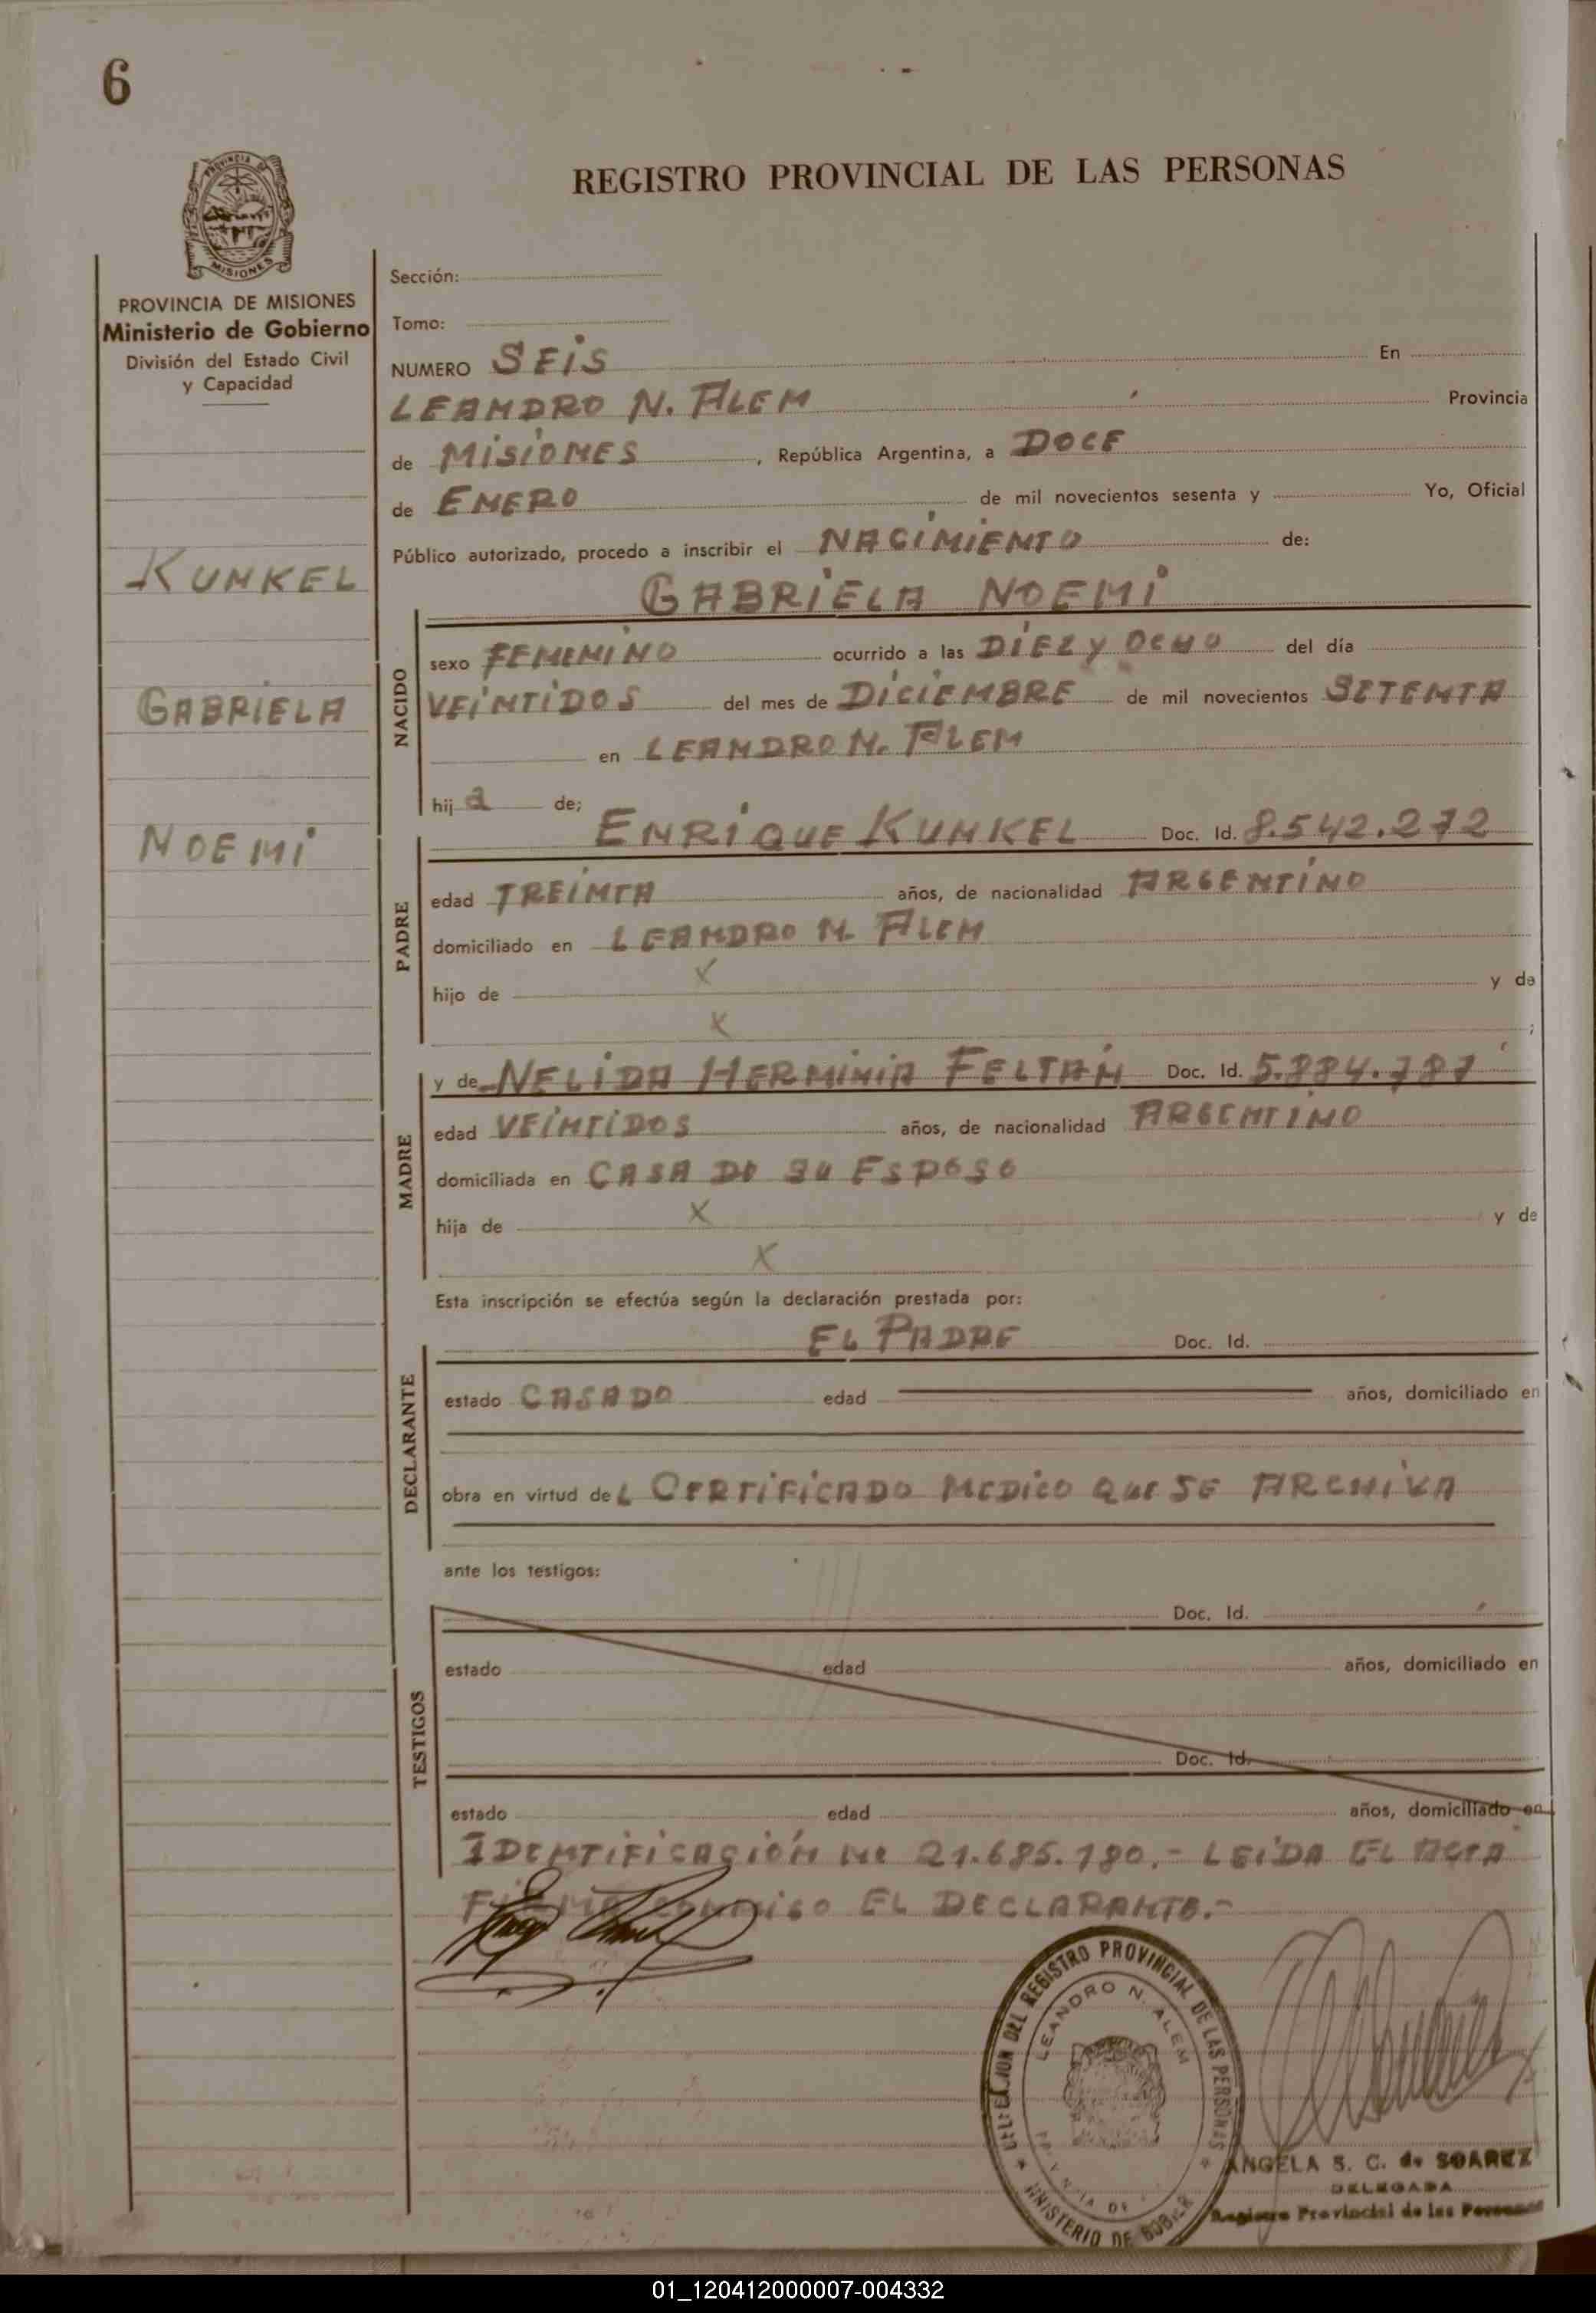 6
PROVINCIA DE
MISIONES
REGISTRO PROVINCIAL DE LAS PERSONAS
PROVINCIA DE MISIONES
Ministerio de Gobierno
División del Estado Civil
y Capacidad
KUNKEL
GABRIELA
NOEMI
Sección:
Tomo:
NUMERO SEIS En
LEANDRO N. ALEM Provincia
de MISIONES, República Argentina, a DOCE
de ENERO de mil novecientos sesenta y Yo, Oficial
Público autorizado, procedo a inscribir el NACIMIENTO de:
GABRIELA NOEMI
NACIDO
sexo FEMENINO ocurrido a las DIEZ Y OCHO del día
VEINTIDOS del mes de DICIEMBRE de mil novecientos SETENTA
en LEANDRO N. ALEM
hija de;
ENRIQUE KUNKEL Doc. Id. 8.542.272
PADRE
edad TREINTA años, de nacionalidad ARGENTINO
domiciliado en LEANDRO N. ALEM
hijo de X y de
X ;
y de NELIDA HERMINIA FELTAN Doc. Id.
MADRE
edad VEINTIDOS años, de nacionalidad ARGENTINO
domiciliada en CASA DE SU ESPOSO
hija de X y de
X
Esta inscripción se efectúa según la declaración prestada por:
EL PADRE Doc. Id.
DECLARANTE
estado CASADO edad años, domiciliado en
obra en virtud del CERTIFICADO MEDICO QUE SE ARCHIVA
ante los testigos:
Doc. Id.
TESTIGOS
estado edad años, domiciliado en
Doc. Id.
estado edad años, domiciliado en
IDENTIFICACIÓN Nº 21.685.180.- LEIDA EL ACTA
FIRMA CONMIGO EL DECLARANTE.-
DEL REGISTRO PROVINCIAL DE LAS PERSONAS
LEANDRO N. ALEM
MINISTERIO DE GOBIER
ANGELA S. C. de SOAREZ
DELEGADA
Registro Provincial de las Personas
01_120412000007-004332